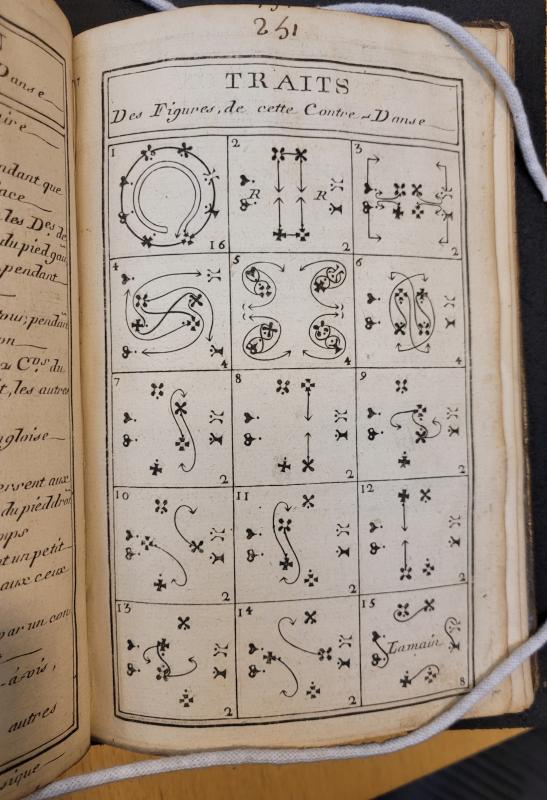 251
TRAITS
Des Figures, de cette Contre-Danse
1
16
2
R
R
2
3
2
4
4
5
4
6
4
7
2
8
2
9
2
10
2
11
2
12
2
13
2
14
2
15
Lamain
8
Danse
aire
pendant que
face
les D.es de
du pied gau
pendant
pour, pendant
on
C.ns du
t, les autres
ngloise
errent aux
du pied droit
mps
t un petit
aux ceux
par un con
-à-vis,
autres
sique